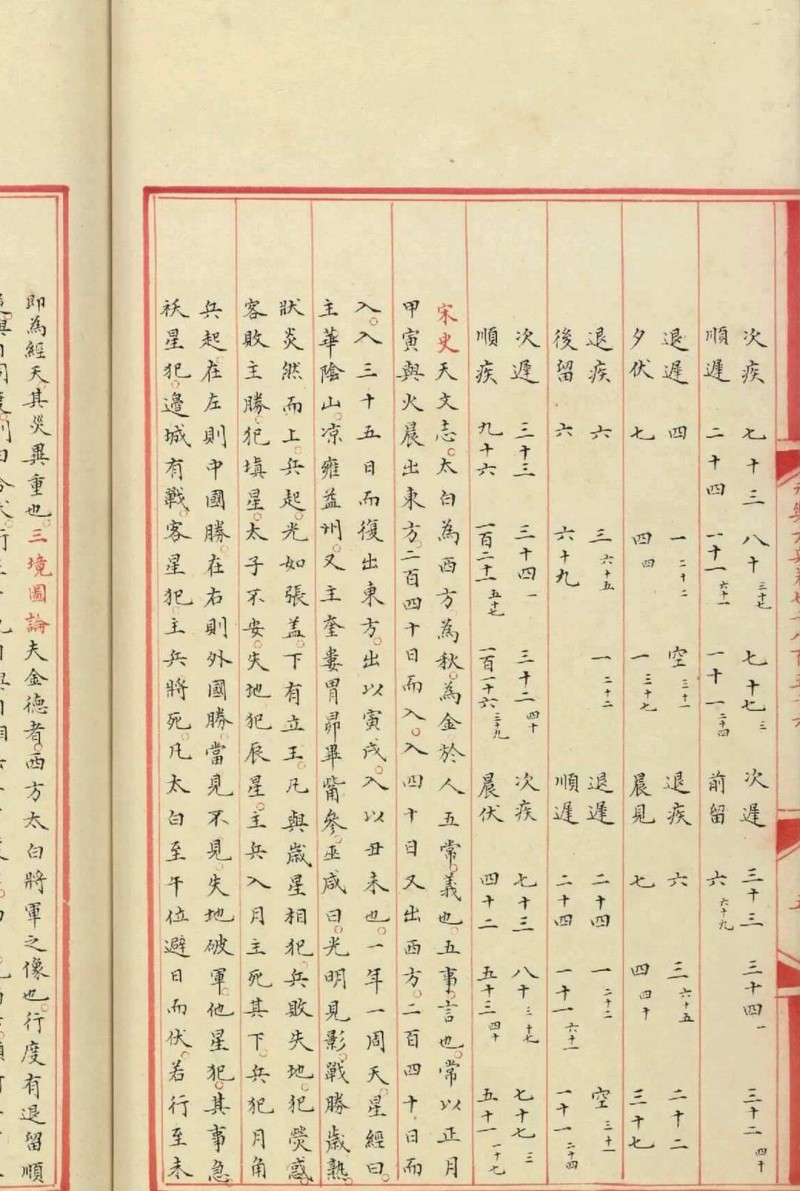 次疾 七十三 八十 三十七 七十七 三 次遲 三十三 三十四 一 三十二 四十
順遲 二十四 一十一 六十一 一十一 二十四 前留 六 六十九
退遲 四 一 二十二 空 三十一 退疾 六 三 六十五 二十二
夕伏 七 四 四 一 三十七 晨見 七 四 四十 三十七
退疾 六 三 六十五 一 二十二 退遲 二十四 一 二十二 空 三十一
後留 六 六十九 順遲 二十四 一十一 六十一 一十一 二十四
次遲 三十三 三十四 一 三十二 四十 次疾 七十三 八十 三十七 七十七 三
順疾 九十六 一百二十一 五十七 一百一十六 三十九 晨伏 四十二 五十三 四十 五十一 一十七
宋史天文志。太白為西方為秋。為金於人五常。義也。五事。言也。常以正月
甲寅與火晨出東方。二百四十日而入。入四十日又出西方。二百四十日而
入。入三十五日而復出東方。出以寅戌。入以丑未也。一年一周天。星經曰。
主華陰山。凉雍益州。又主奎婁胃昴畢觜參。巫咸曰。光明見影。戰勝歲熟。
狀炎然而上。兵起。光如張蓋。下有立王。凡與歲星相犯。兵敗失地。犯熒惑。
客敗主勝。犯塡星。太子不安。失地犯辰星。主兵入月主死其下。兵犯月角
兵起。在左則中國勝。在右則外國勝。當見不見。失地破軍。他星犯。其事急。
祅星犯。邊城有戰。客星犯。主兵將死。凡太白至午位避日而伏。若行至未
即為經天。其災異重也。三境圖論夫金德者。西方太白將軍之像也。行度有退留順